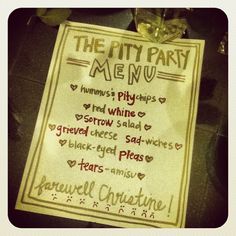 THE PITY PARTY
MENU
hummus & pity chips
red whine
sorrow salad
grieved cheese sad-wiches
black-eyed pleas
tears-amisu
farewell Christine!